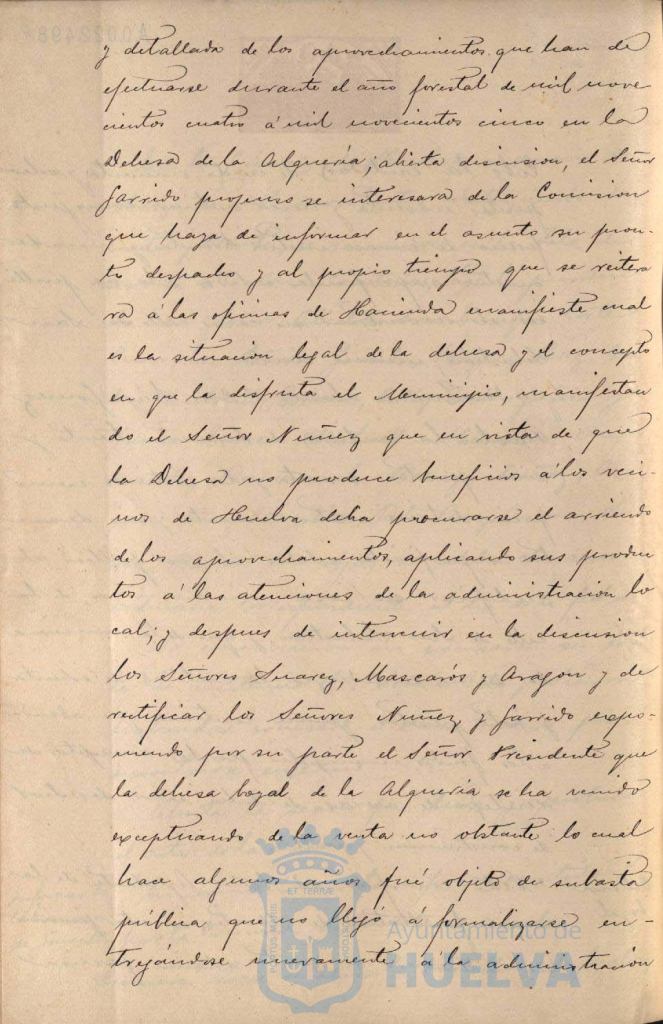 y detallada de los aprovechamientos que han de
efectuarse durante el año forestal de mil nove
cientos cuatro á mil novecientos cinco en la
Dehesa de la Alquería; abierta discusion, el Señor
Garrido propuso se interesara de la Comision
que haya de informar en el asunto su pron-
to despacho y al propio tiempo que se reitera
ra á las oficinas de Hacienda manifieste cual
es la situacion legal de la dehesa y el concepto
en que la disfruta el Municipio, manifestan
do el Señor Nuñez que en vista de que
la Dehesa no produce beneficios á los veci-
nos de Huelva debia procurarse el arriendo
de los aprovechamientos, aplicando sus produc
tos á las atenciones de la administracion lo
cal; y despues de intervenir en la discusion
los Señores Suarez, Mascarós y Aragon y de
rectificar los Señores Nuñez y Garrido expo-
niendo por su parte el Señor Presidente que
la dehesa boyal de la Alqueria se ha venido
exceptuando de la venta no obstante lo cual
hace algunos años fué objeto de subasta
pública que no llegó á formalizarse en-
tregándose nuevamente á la administracion
Ayuntamiento de
HUELVA